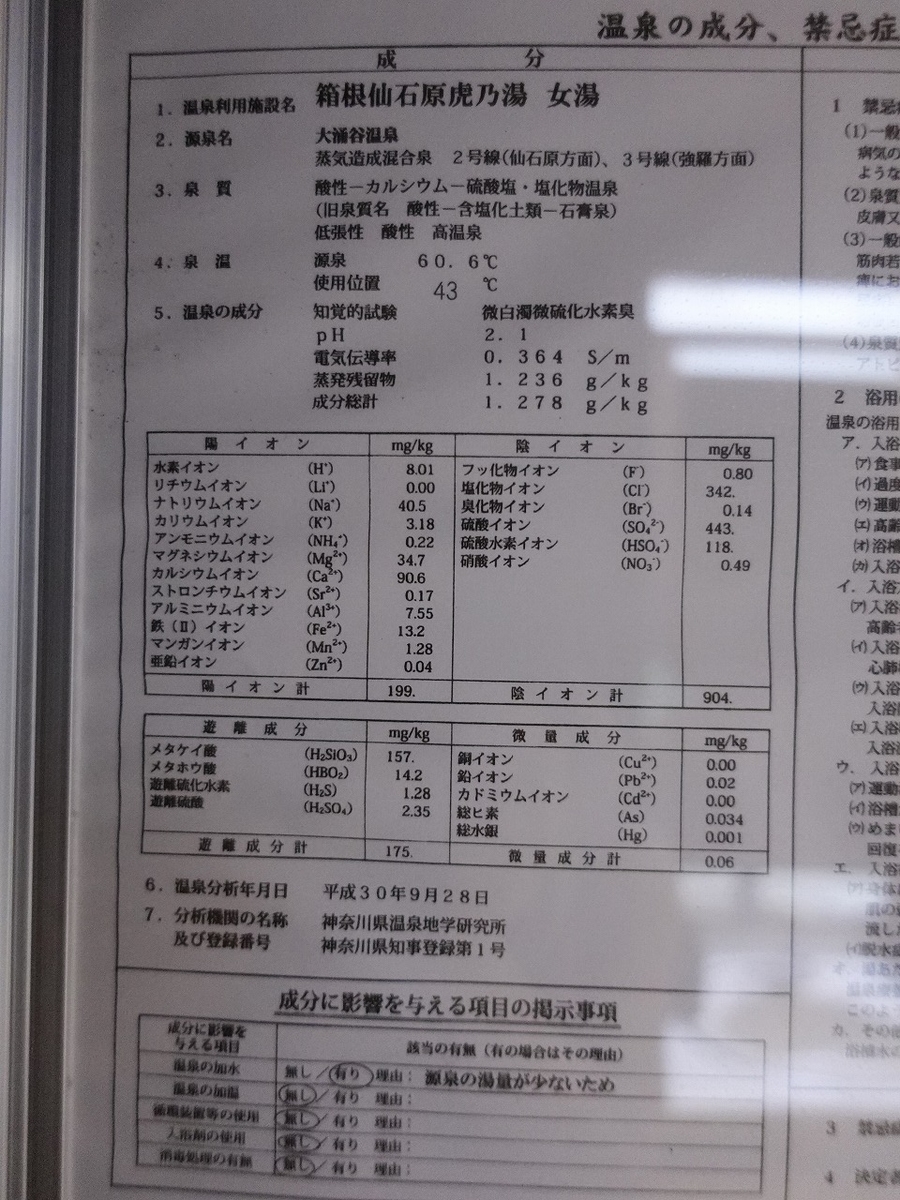 温泉の成分、禁忌症
成 分
1．温泉利用施設名 箱根仙石原虎乃湯 女湯
2．源泉名 大涌谷温泉
蒸気造成混合泉 2号線(仙石原方面)、3号線(強羅方面)
3．泉 質 酸性－カルシウム－硫酸塩・塩化物温泉
(旧泉質名 酸性－含塩化土類－石膏泉)
低張性 酸性 高温泉
4．泉 温 源泉 60．6℃
使用位置 43 ℃
5．温泉の成分 知覚的試験 微白濁微硫化水素臭
pH 2．1
電気伝導率 0．364 S／m
蒸発残留物 1．236 g／kg
成分総計 1．278 g／kg
陽イオン mg/kg 陰イオン mg/kg
水素イオン (H⁺) 8.01 フッ化物イオン (F⁻) 0.80
リチウムイオン (Li⁺) 0.00 塩化物イオン (Cl⁻) 342.
ナトリウムイオン (Na⁺) 40.5 臭化物イオン (Br⁻) 0.14
カリウムイオン (K⁺) 3.18 硫酸イオン (SO₄²⁻) 443.
アンモニウムイオン (NH₄⁺) 0.22 硫酸水素イオン (HSO₄⁻) 118.
マグネシウムイオン (Mg²⁺) 34.7 硝酸イオン (NO₃⁻) 0.49
カルシウムイオン (Ca²⁺) 90.6
ストロンチウムイオン (Sr²⁺) 0.17
アルミニウムイオン (Al³⁺) 7.55
鉄（Ⅱ）イオン (Fe²⁺) 13.2
マンガンイオン (Mn²⁺) 1.28
亜鉛イオン (Zn²⁺) 0.04
陽イオン計 199. 陰イオン計 904.
遊離成分 mg/kg 微量成分 mg/kg
メタケイ酸 (H₂SiO₃) 157. 銅イオン (Cu²⁺) 0.00
メタホウ酸 (HBO₂) 14.2 鉛イオン (Pb²⁺) 0.02
遊離硫化水素 (H₂S) 1.28 カドミウムイオン (Cd²⁺) 0.00
遊離硫酸 (H₂SO₄) 2.35 総ヒ素 (As) 0.034
総水銀 (Hg) 0.001
遊離成分計 175. 微量成分計 0.06
6．温泉分析年月日 平成30年9月28日
7．分析機関の名称 神奈川県温泉地学研究所
及び登録番号 神奈川県知事登録第1号
成分に影響を与える項目の掲示事項
成分に影響を
与える項目 該当の有無（有の場合はその理由）
温泉の加水 無し／有り 理由： 源泉の湯量が少ないため
温泉の加温 無し／有り 理由：
循環装置等の使用 無し／有り 理由：
入浴剤の使用 無し／有り 理由：
消毒処理の有無 無し／有り 理由：
1 禁忌
(1)一般
病気の
ような
(2)泉質
皮膚又
(3)一般
筋肉若
(4)泉質
アトピ
2 浴用
温泉の浴用
ア．入浴
(ア)食事
(イ)過度
(ウ)運動
(エ)高齢
(オ)浴槽
(カ)入浴
イ．入浴
(ア)入浴
高齢
(イ)入浴
心肺
(ウ)入浴
入浴
(エ)入浴
入浴
ウ．入浴
(ア)運動
(イ)浴槽
(ウ)めま
回復
エ．入浴
(ア)身体
肌の
流し
(イ)脱水
カ．その
浴槽水の
3 禁忌
4 決定者